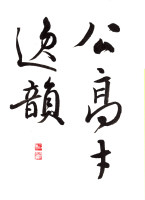 公高才
逸韻